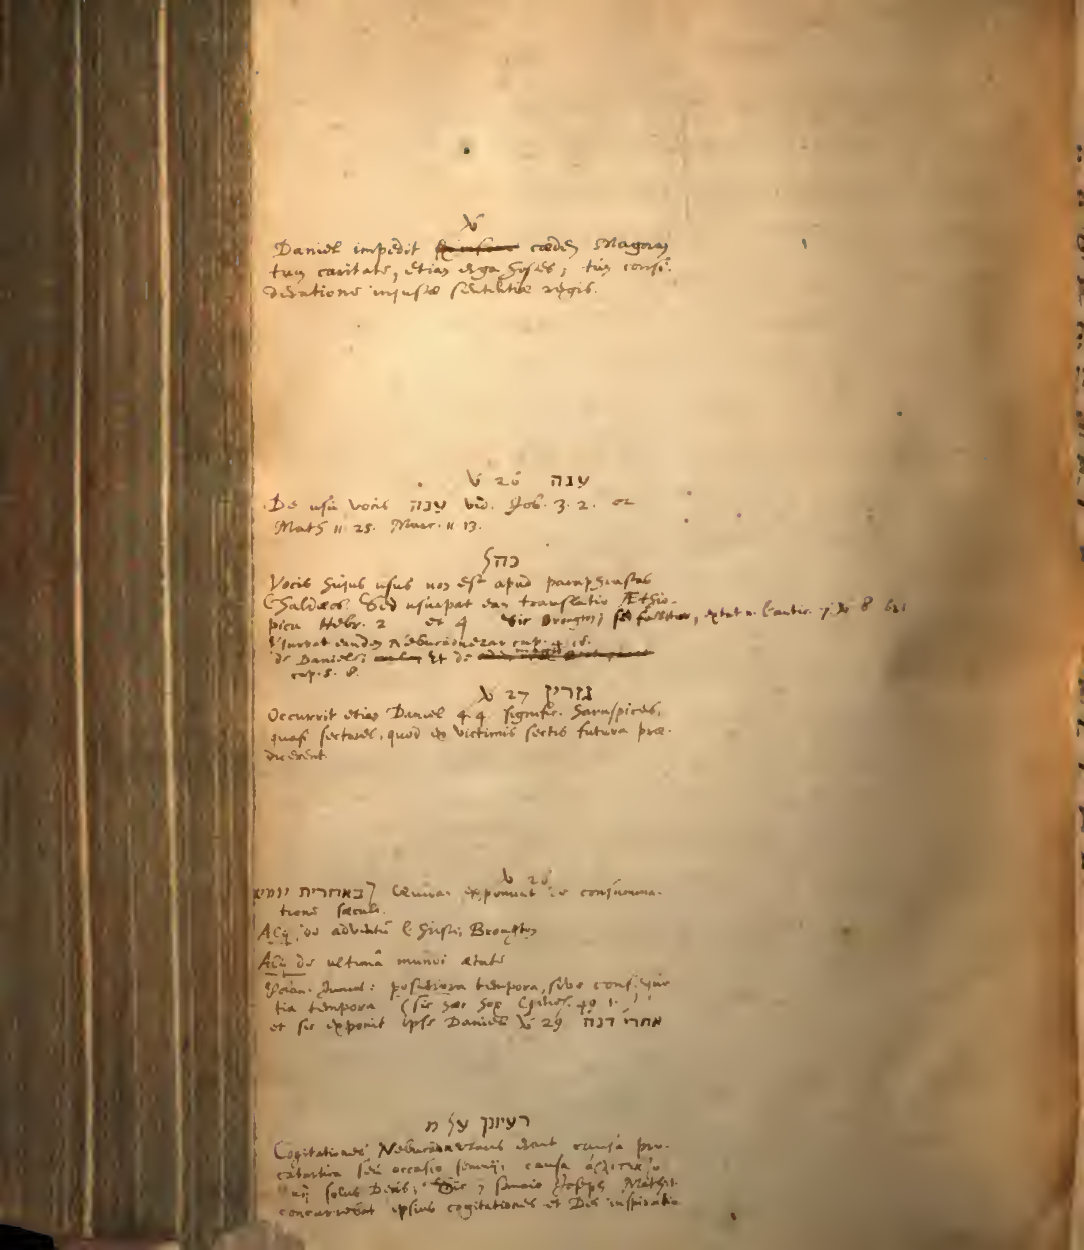 V
Daniel impedit cædem Magorum
tum caritate, etiam erga hostes; tum consi-
deratione injustæ sententiæ regis.
V 26 ענה
De usu vocis ענה vid. Job. 3. 2. et
Math 11 25. Marc. 11 13.
כהל
Vocis hujus usus non est apud paraphrastas
Chaldæos. Sed usurpat eam translatio Æthio-
pica Hebr. 2 et 4 sic Brougton; sed fallitur, extat 7 8
Usurpat eandem Nebucadnezar cap. 4 18.
de Daniele; Et de
cap. 5. 8.
V 27 גזרין
Occurrit etiam Daniel 4. 4. signific. Haruspices,
quasi sectores, quod ex victimis sectis futura præ-
dicerent.
V 28
באחרית יומיא] exponunt de consumma-
tione sæculi.
Alij de adventu Christi; Brougton
Alij de ultima mundi ætate
Junius: posteriora tempora, sive consequen-
tia tempora (sic Genes. 49 1.)
et sic exponit ipse Daniel V 29 אחרי דנה
רעיונך על מ
Cogitationes Nebucadnezaris erant causa pro-
catarctica seu occasio somnij; causa
solus Deus; Sic in somnio Joseph Matth.
concurrebat ipsius cogitationes et Dei inspiratio